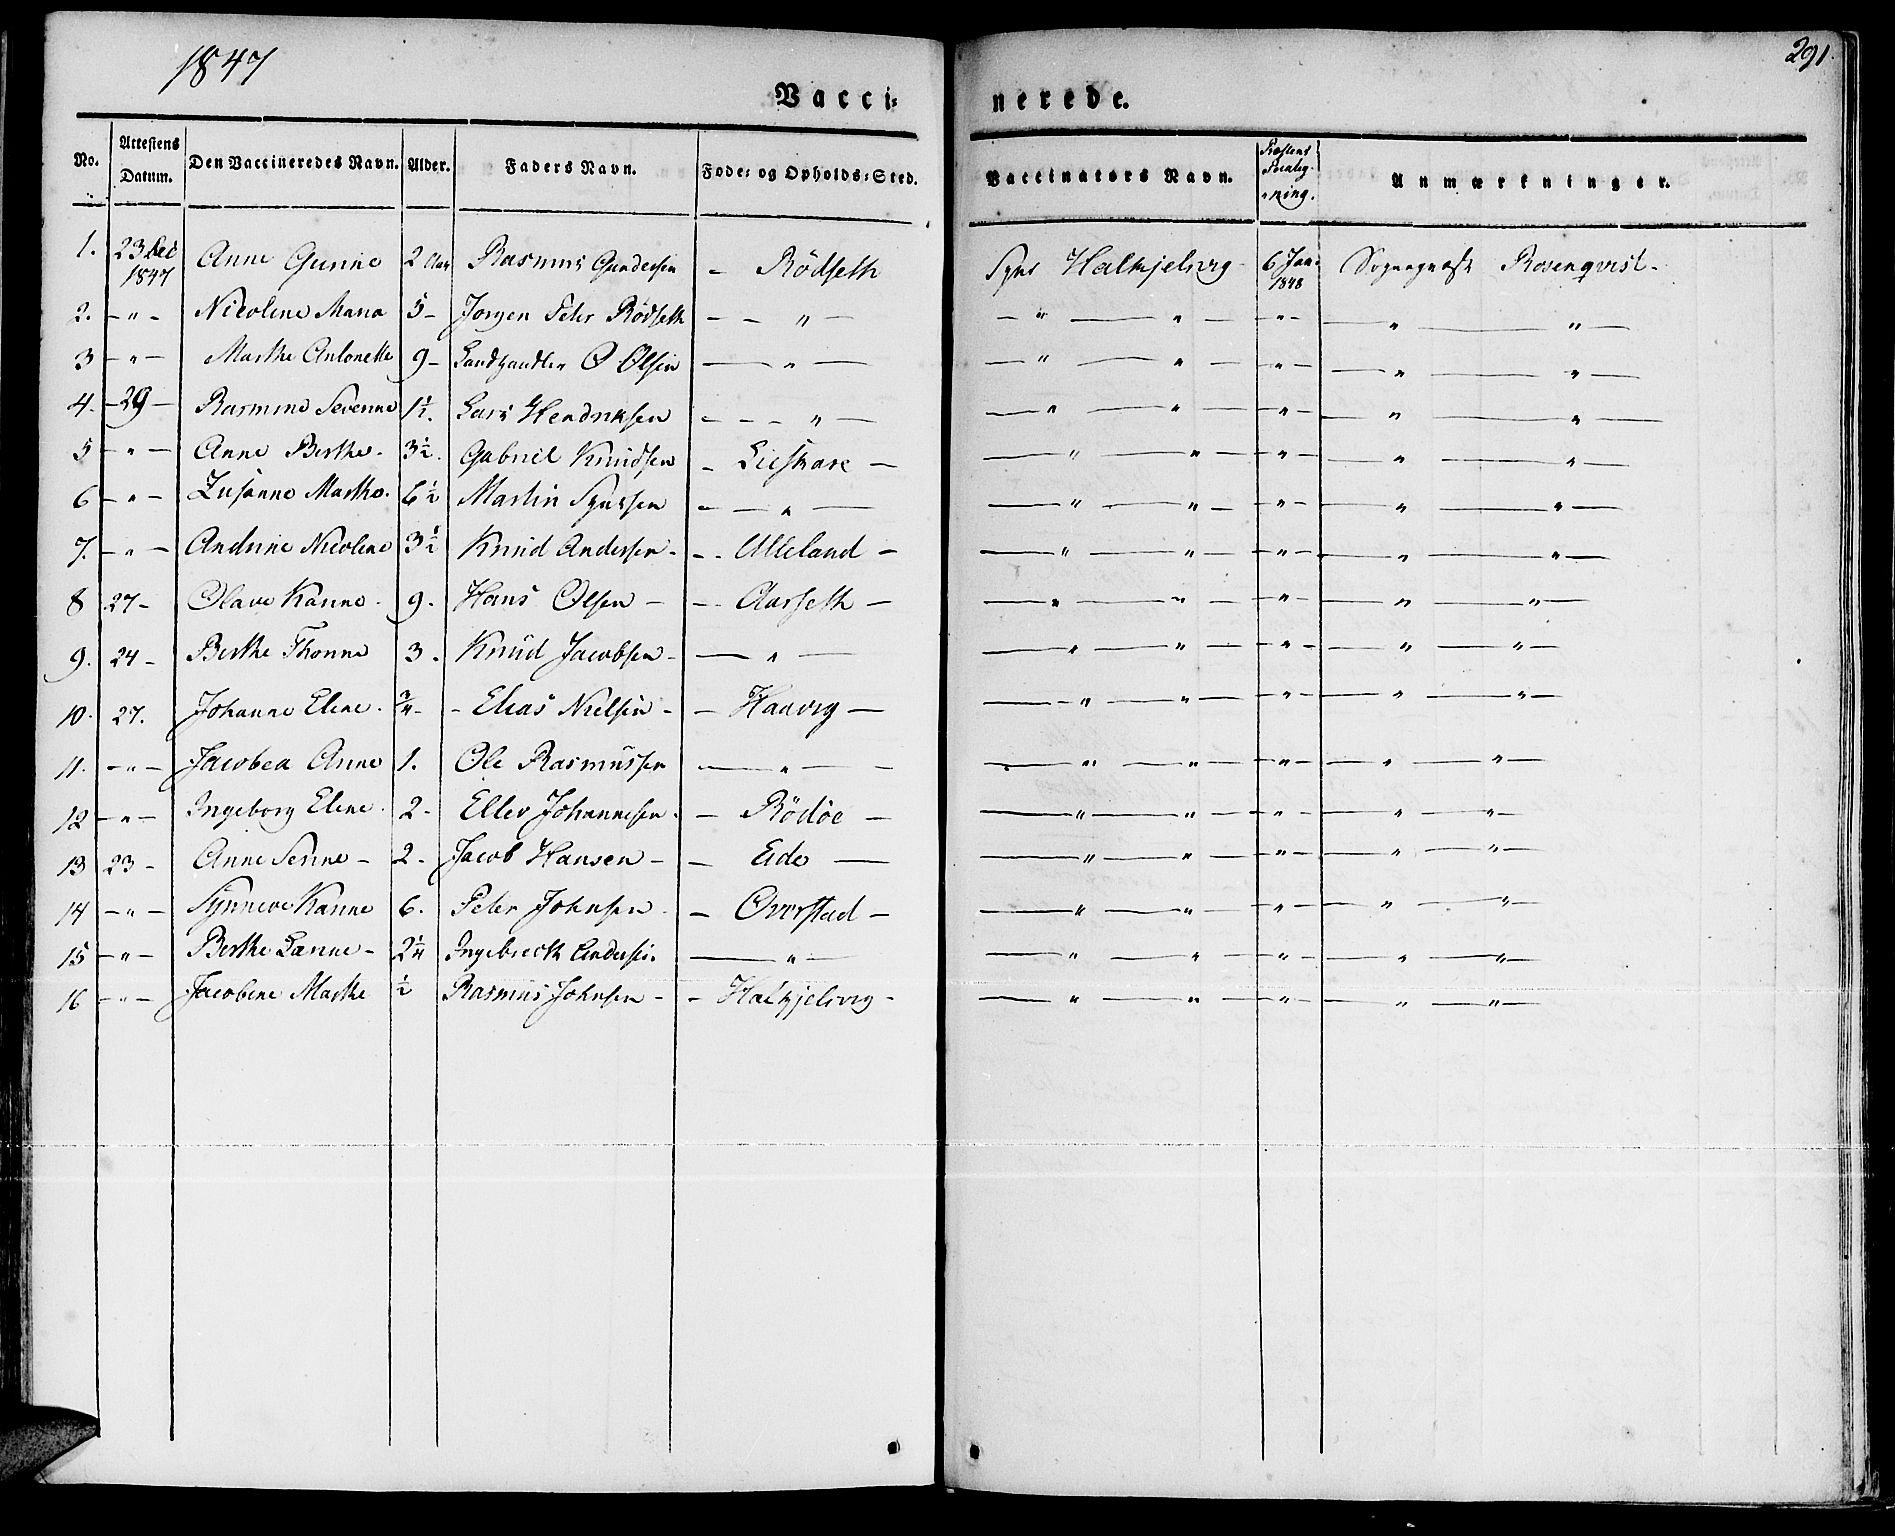 1847
291.
Vacci= nerede.
No. Attestens Datum. Den Vaccineredes Navn. Alder. Faders Navn. Føde= og Opholds=Sted. Vaccinators Navn. Anmærkninger.
1. 23 Dec 1847 Anne Gunine 2 Aar Rasmus Gundersen - Rödseth Syns Halkjelsvig 6 Jan. 1848 Rosenqvist -
2. - " - Nicoline Maria 5 - Jörgen Peter Rödseth - - " - - " - " - " - - " - " -
3 - " - Marthe Antonette 9 - Landhandler O Olsen - " - - " - " - " - - " - " -
4. - 29 - Rasmine Sevenne 1½. Lars Hendriksen - - - " - - " - " - " - - " - " -
5 - " - Anne Berthe. 3½. Gabriel Knudsen - Lieskare - - " - " - " - - " - " -
6 - " - Zusanne Marthe. 6½ Martin Synssen - - " - - " - " - " - - " - " -
7. - " - Andrine Nicoline 3½ Knud Andersen - - . Ulleland - - " - " - " - - " - " -
8 27 - Olave Kanne. 9. Hans Olsen - - . Aarseth - - " - " - " - - " - " -
9. 24 - Berthe Thonne 3. Knud Jacobsen - - " - - " - " - " - - " - " -
10. 27. Johanne Elene. ¾ - - Elias Nielsen - - Haavig - - " - " - " - - " - " -
11. - " - Jacobea Anne 1. Ole Rasmussen - " - - - " - " - " - - " - " -
12 - " - Ingeborg Elene. 2 - Ellev Johannesen. - Rödöe - - " - " - " - - " - " -
13 23 - Anne Senne - 2. Jacob Hansen - - Eide - - " - " - " - - " - " -
14 - " - Synneve Kanne 6. Peter Johnsen. - Overstad - - " - " - " - - " - " -
15 - " - Berthe Lanne - 2¼ Ingebrecth Andersen. - " - - " - " - " - - " - " -
16 - " - Jacobine Marthe ½ Rasmus Johnsen - - Halkjelsvig - - " - " - " - - " - " -